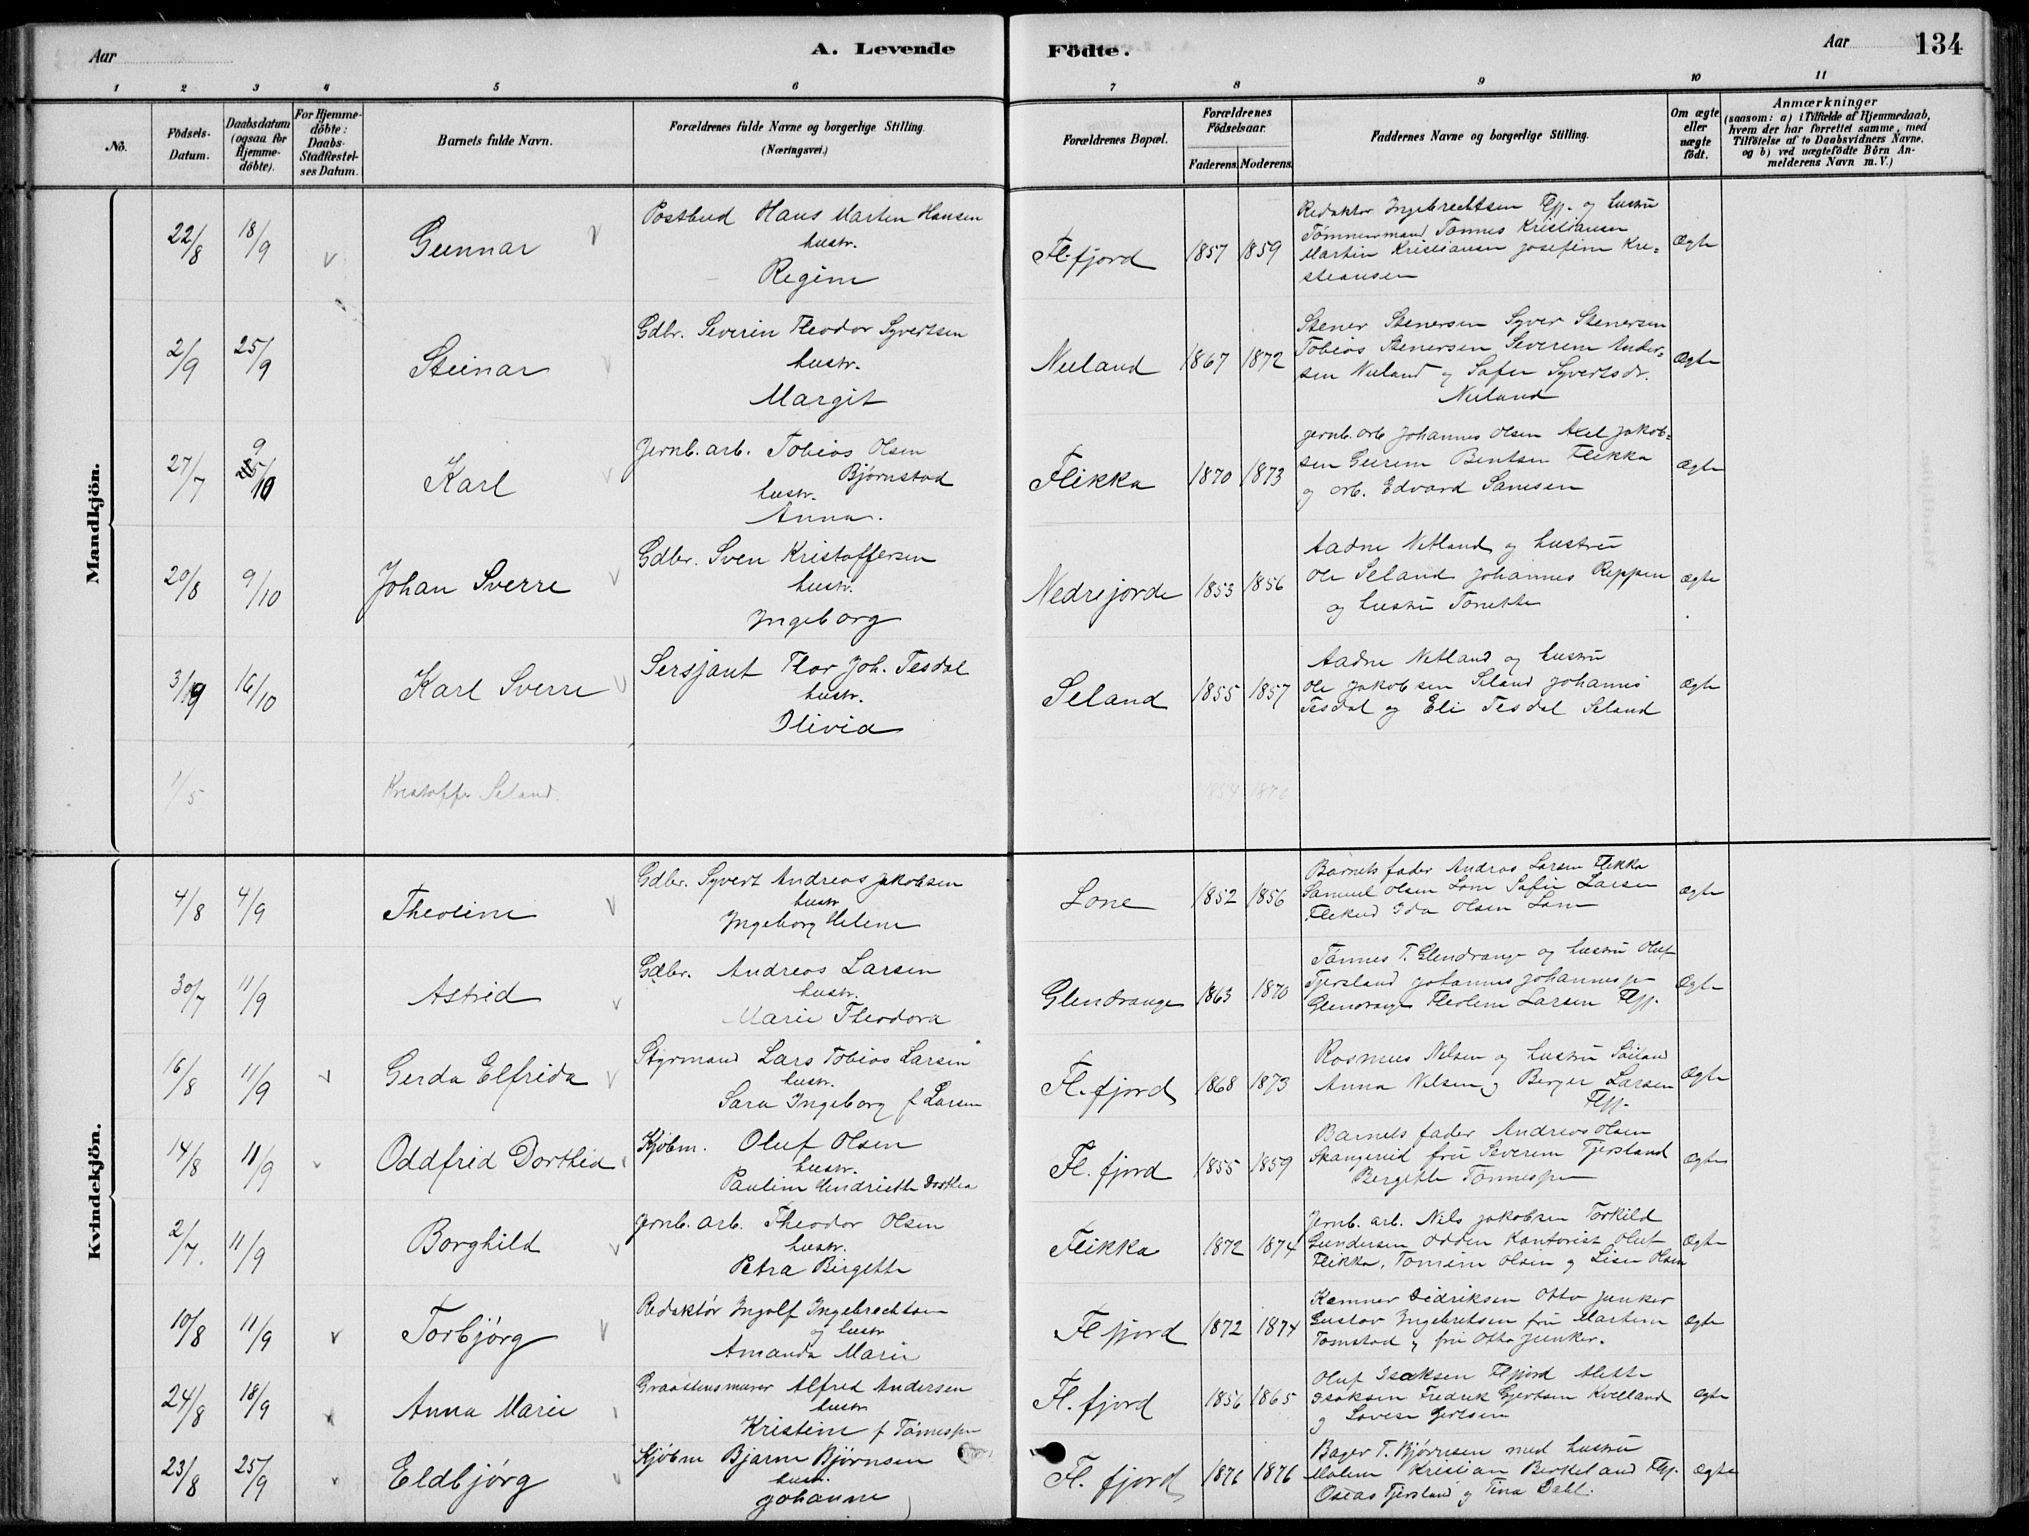 Aar
A. Levende
Födte.
Aar
134
1 2 3 4 5 6 7 8 9 10 11
No.
Födsels-Datum.
Daabsdatum (ogsaa för Hjemme-döbte).
For Hjemme-döbte: Daabs-Stadfæstel-ses Datum.
Barnets fulde Navn.
Forældrenes fulde Navne og borgerlige Stilling.
(Næringsvei.)
Forældrenes Bopæl.
Forældrenes Födselsaar.
Faderens. Moderens.
Faddernes Navne og borgerlige Stilling.
Om ægte eller uægte födt.
Anmærkninger
(saasom: a) i Tilfælde af Hjemmedaab,
hvem der har forrettet samme, med
Tilföielse af to Daabsvidners Navne.
og b) ved uægtefödte Börn An-
melderens Navn m. V.)
Mandkjön.
22/8 18/9 Gunnar
Postbud Hans Martin Hansen
hustr.
Regine
Fl.fjord 1857 1859
Redaktør Ingebrechtsen Flfj. og hustru
Tømmermand Tønnes Kristiansen
Martin Kristiansen Josefine Kri-
stiansen
Ægte
2/9 25/9 Steinar
Gdbr. Severin Theodor Syvertsen
hustr.
Margit
Nuland 1867 1872
Stener Stenersen Syver Stenersen
Tobias Stenersen Severine Ander-
sen Nuland og Sofie Syvertsdr.
Nuland
Ægte
27/7 9/10 Karl
Jernb. arb. Tobias Olsen
Bjørnstad
hustr.
Anna.
Flikka 1870 1873
Jernb. arb Johannes Olsen Axel Jakob-
sen Bentsen Flikka
og arb. Edvard
Ægte
20/8 9/10 Johan Sverre
Gdbr. Sven Kristoffersen
hustr.
Ingeborg
Nedrejorde 1853 1856
Aadne Netland og hustru
Ole Seland Johannes Reppen
og hustru Tonette
Ægte
3/9 16/10 Karl Sverre
Sersjant Thor Joh. Tesdal
hustr.
Olivia
Seland 1855 1857
Aadne Netland og hustru
Ole Jakobsen Seland Johannes
Tesdal og Eli Tesdal Seland
Ægte
1/5 Kristoffer Seland.
Kvindekjön.
4/8 4/9 Theoline
Gdbr. Syvert Andreas Jakobsen
hustr
Ingeborg Helene
Lone 1852 1856
Barnets fader Andreas Larsen Flikka
Samuel Olsen Lone Sofie Larsen
Ida Olsen Lone
Ægte
30/7 11/9 Astrid
Gdbr. Andreas Larsen
hustr.
Marie Theodora
Glendrange 1863 1870
Tønnes T. Glendrange og hustru Oluf
Tjersland Johannes Johannesen
Glendrange Theoline Larsen Flfj.
Ægte
16/8 11/9 Gerda Elfrida
Styrmand Lars Tobias Larsen
hustr.
Sara Ingeborg f Larsen
Fl. fjord 1868 1873
Rasmus Nilsen og hustru
Anna Nilsen og Berger Larsen
Flfj.
Ægte
14/8 11/9 Oddfrid Dorthea
Kjøbm. Oluf Olsen
hustr.
Pauline Hendriette Dorthea
Fl. fjord 1855 1859
Barnets fader Andreas Olsen
fru Severine Tjersland
Bergette Tønnesen
Ægte
2/7. 11/9 Borghild
Jernb. arb. Theodor Olsen
hustr.
Petra Birgette
Flikka 1872 1874
Jernb. arb. Nils Jakobsen Torkild
Gundersen Odden Kontorist Oluf
Flikka, Tomine Olsen og Lise Olsen
Ægte
10/8 11/9 Torbjørg
Redaktør Ingolf Ingebrechtsen
og hustr
Amanda Marie
Fl fjord 1872 1874
Kemner Didriksen Otto Junker
Gustav Ingebretsen fru Martine
Tomstad og fru Otto Junker.
Ægte
24/8 18/9 Anna Marie
Graastensmurer Alfred Andersen
hustr
Kristine f Tønnesen
Fl. fjord 1856 1865
Oluf Isaksen Flfjord Alette
Isaksen Fredrik Gjertsen Kvelland
og Lovise Gjertsen
Ægte
23/8 25/9 Eldbjørg
Kjøbm Bjarne Bjørnsen
hustr.
Johanne
Fl. fjord 1876 1876
Bager T. Bjørnsen med hustru
Malene Kristian Birkeland Flfj.
Oseas Tjersland og Tina Dahl.
Ægte